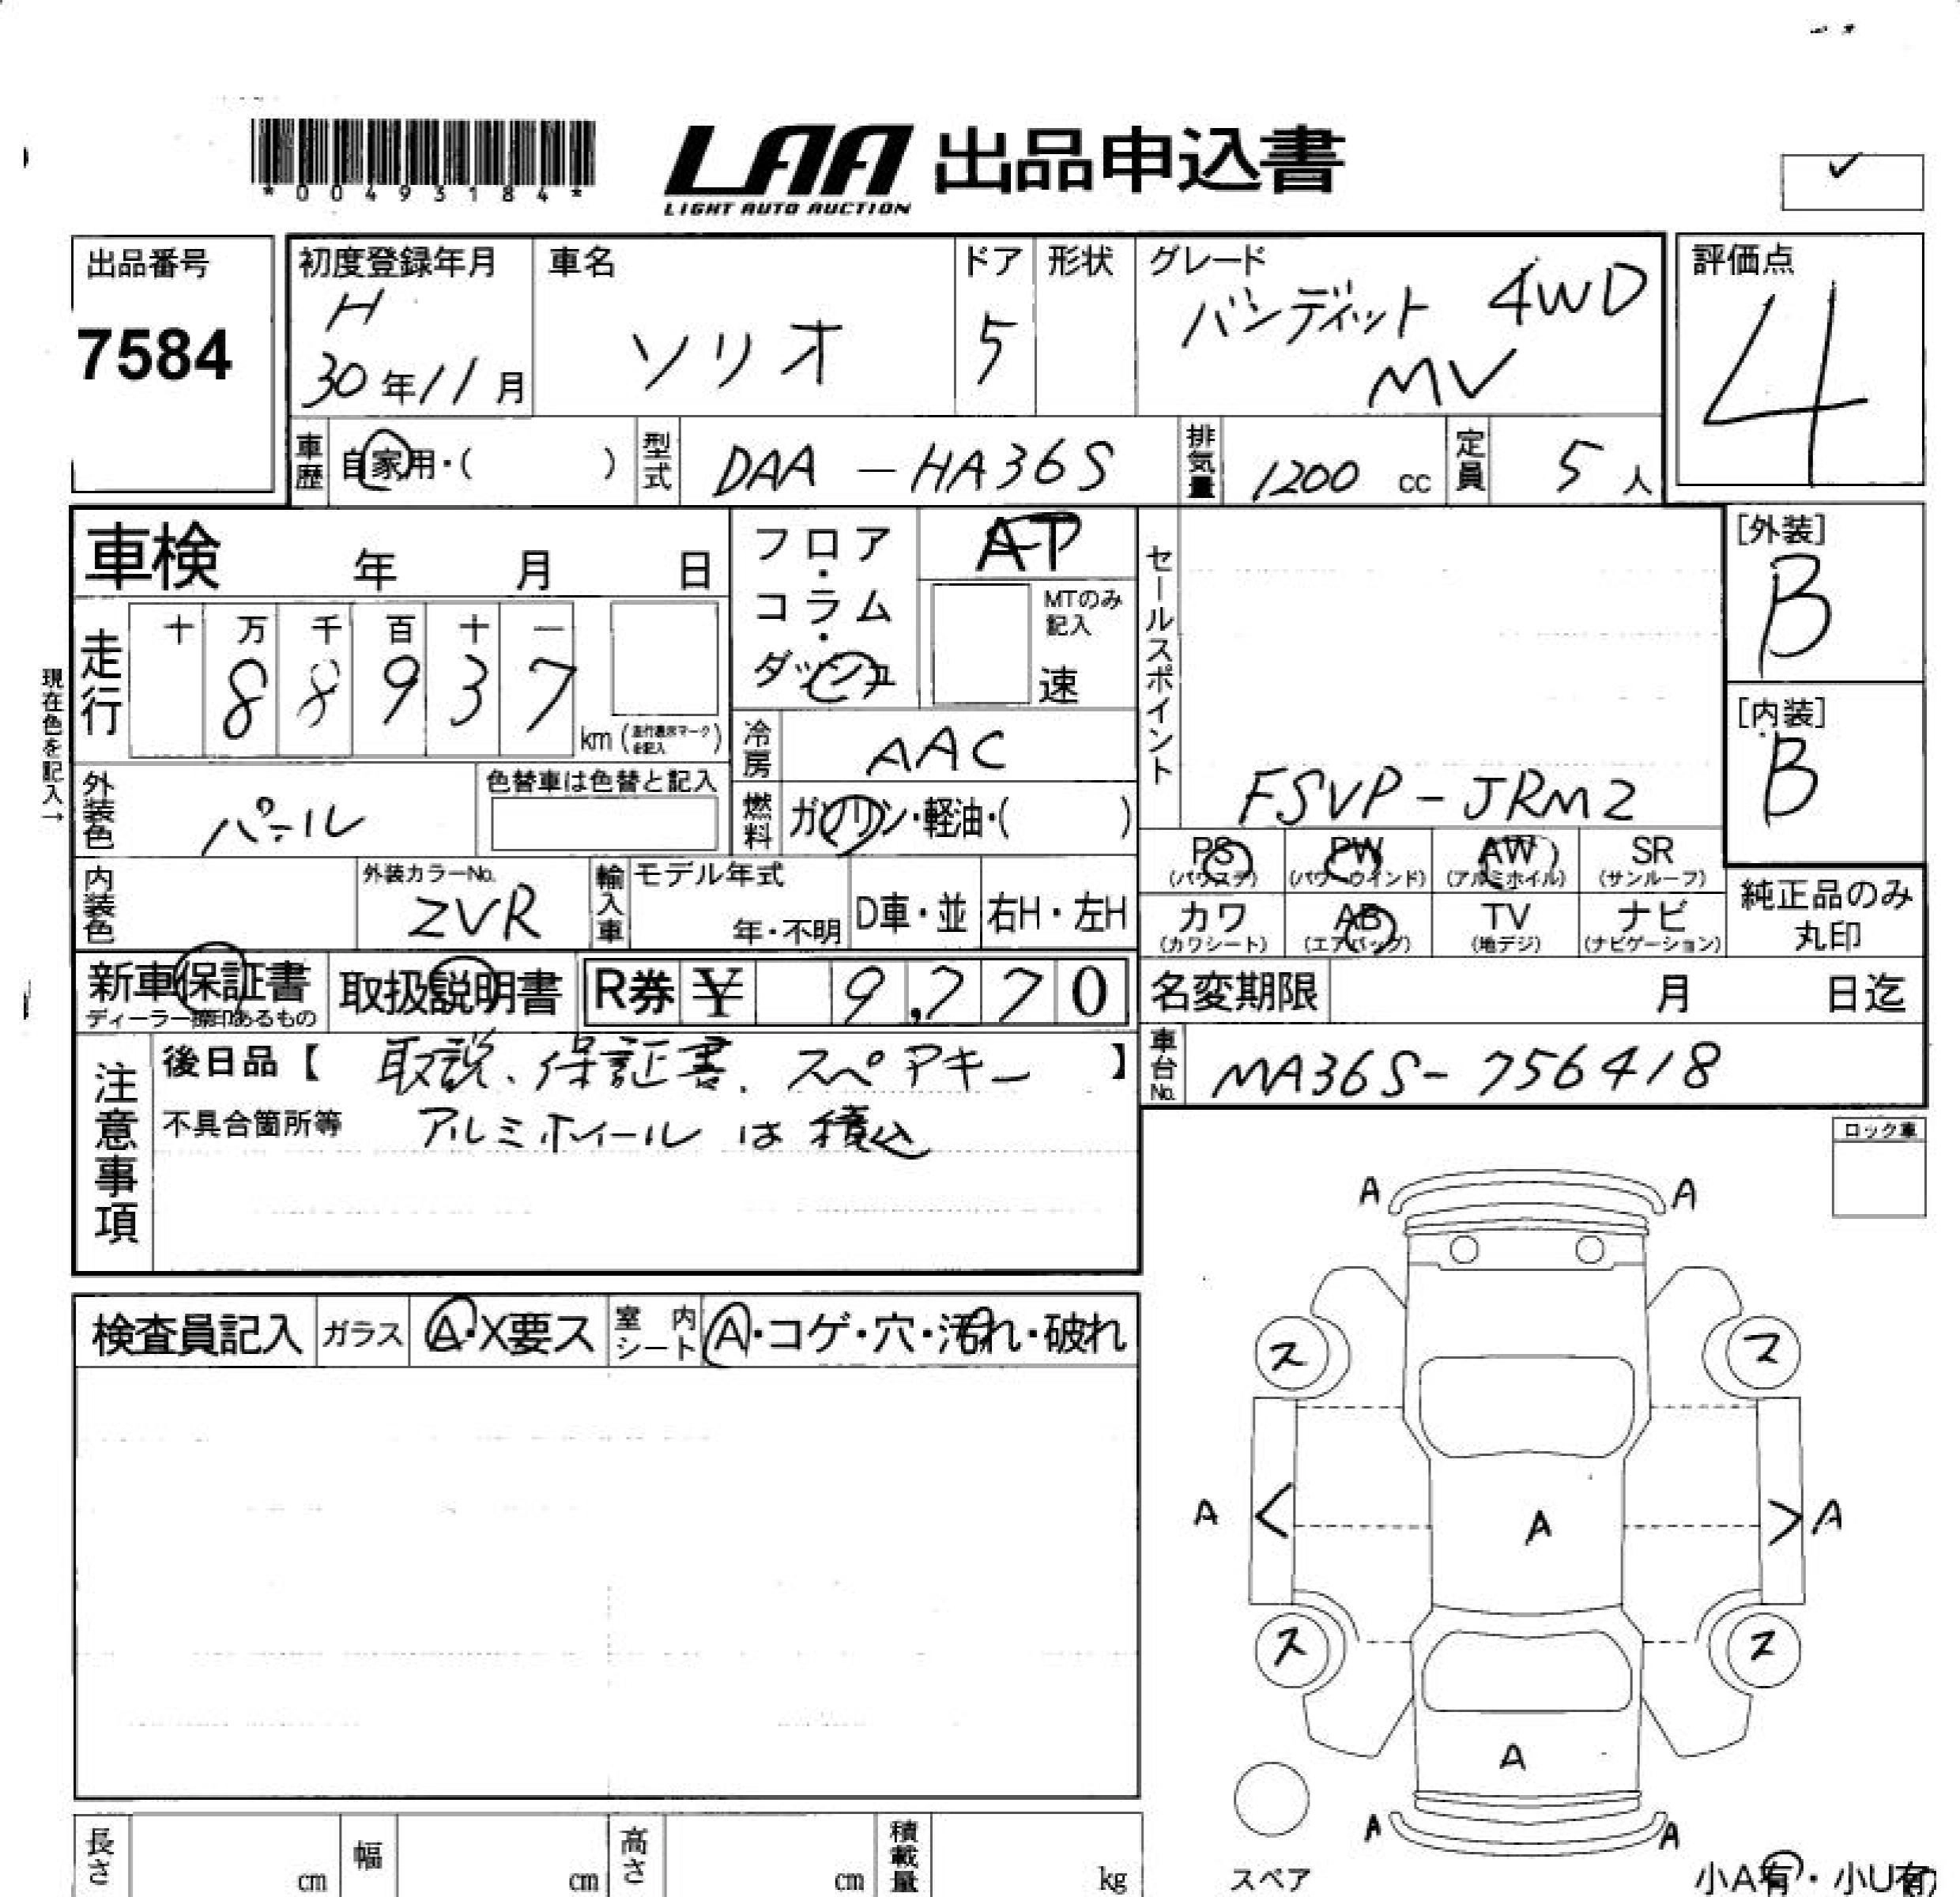 *00493184*
LAA 出品申込書
LIGHT AUTO AUCTION
出品番号
7584
初度登録年月
H
30年11月
車名
ソリオ
ドア
5
形状
グレード
バンディット 4WD
MV
評価点
4
車歴
自家用・( )
型式
DAA-HA36S
排気量
1200 cc
定員
5人
車検 年 月 日
フロア・コラム・ダッシュ
AT
MTのみ記入
速
セールスポイント
FSVP-JRM2
[外装]
B
[内装]
B
現在色を記入→
走行
十 万 千 百 十 一
8 8 9 3 7
km
冷房
AAC
外装色
パール
色替車は色替と記入
燃料
ガソリン・軽油・( )
PS
(パワステ)
PW
(パワーウインド)
AW
(アルミホイル)
SR
(サンルーフ)
内装色
外装カラーNo.
ZVR
輸入車
モデル年式
年・不明
D車・並
右H・左H
カワ
(カワシート)
AB
(エアバッグ)
TV
(地デジ)
ナビ
(ナビゲーション)
純正品のみ
丸印
新車保証書
ディーラー捺印あるもの
取扱説明書
R券 ¥ 9,770
名変期限 月 日迄
車台No.
MA36S-756418
注意事項
後日品【 取説、保証書、スペアキー 】
不具合箇所等 アルミホイールは積込
ロック車
検査員記入
ガラス
A・X要ス
室内シート
A・コゲ・穴・汚れ・破れ
A A
ス ス
A < A > A
ス ス
A
A A
スペア
小A有・小U有
長さ cm
幅 cm
高さ cm
積載量 kg